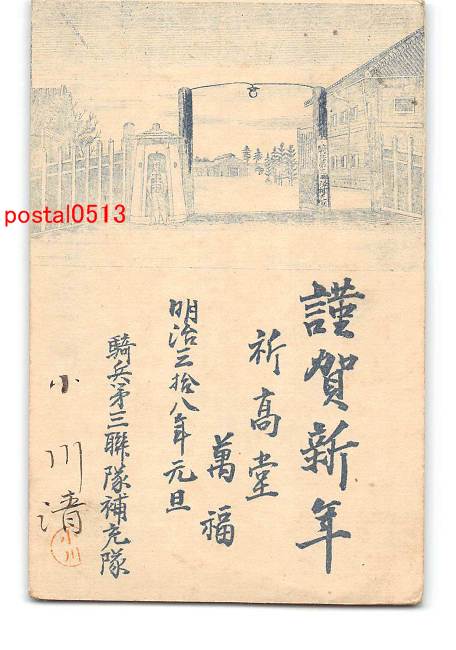 謹賀新年
祈高堂
萬福
明治三拾八年元旦
騎兵第三聯隊補充隊
小川清
小川
postal0513